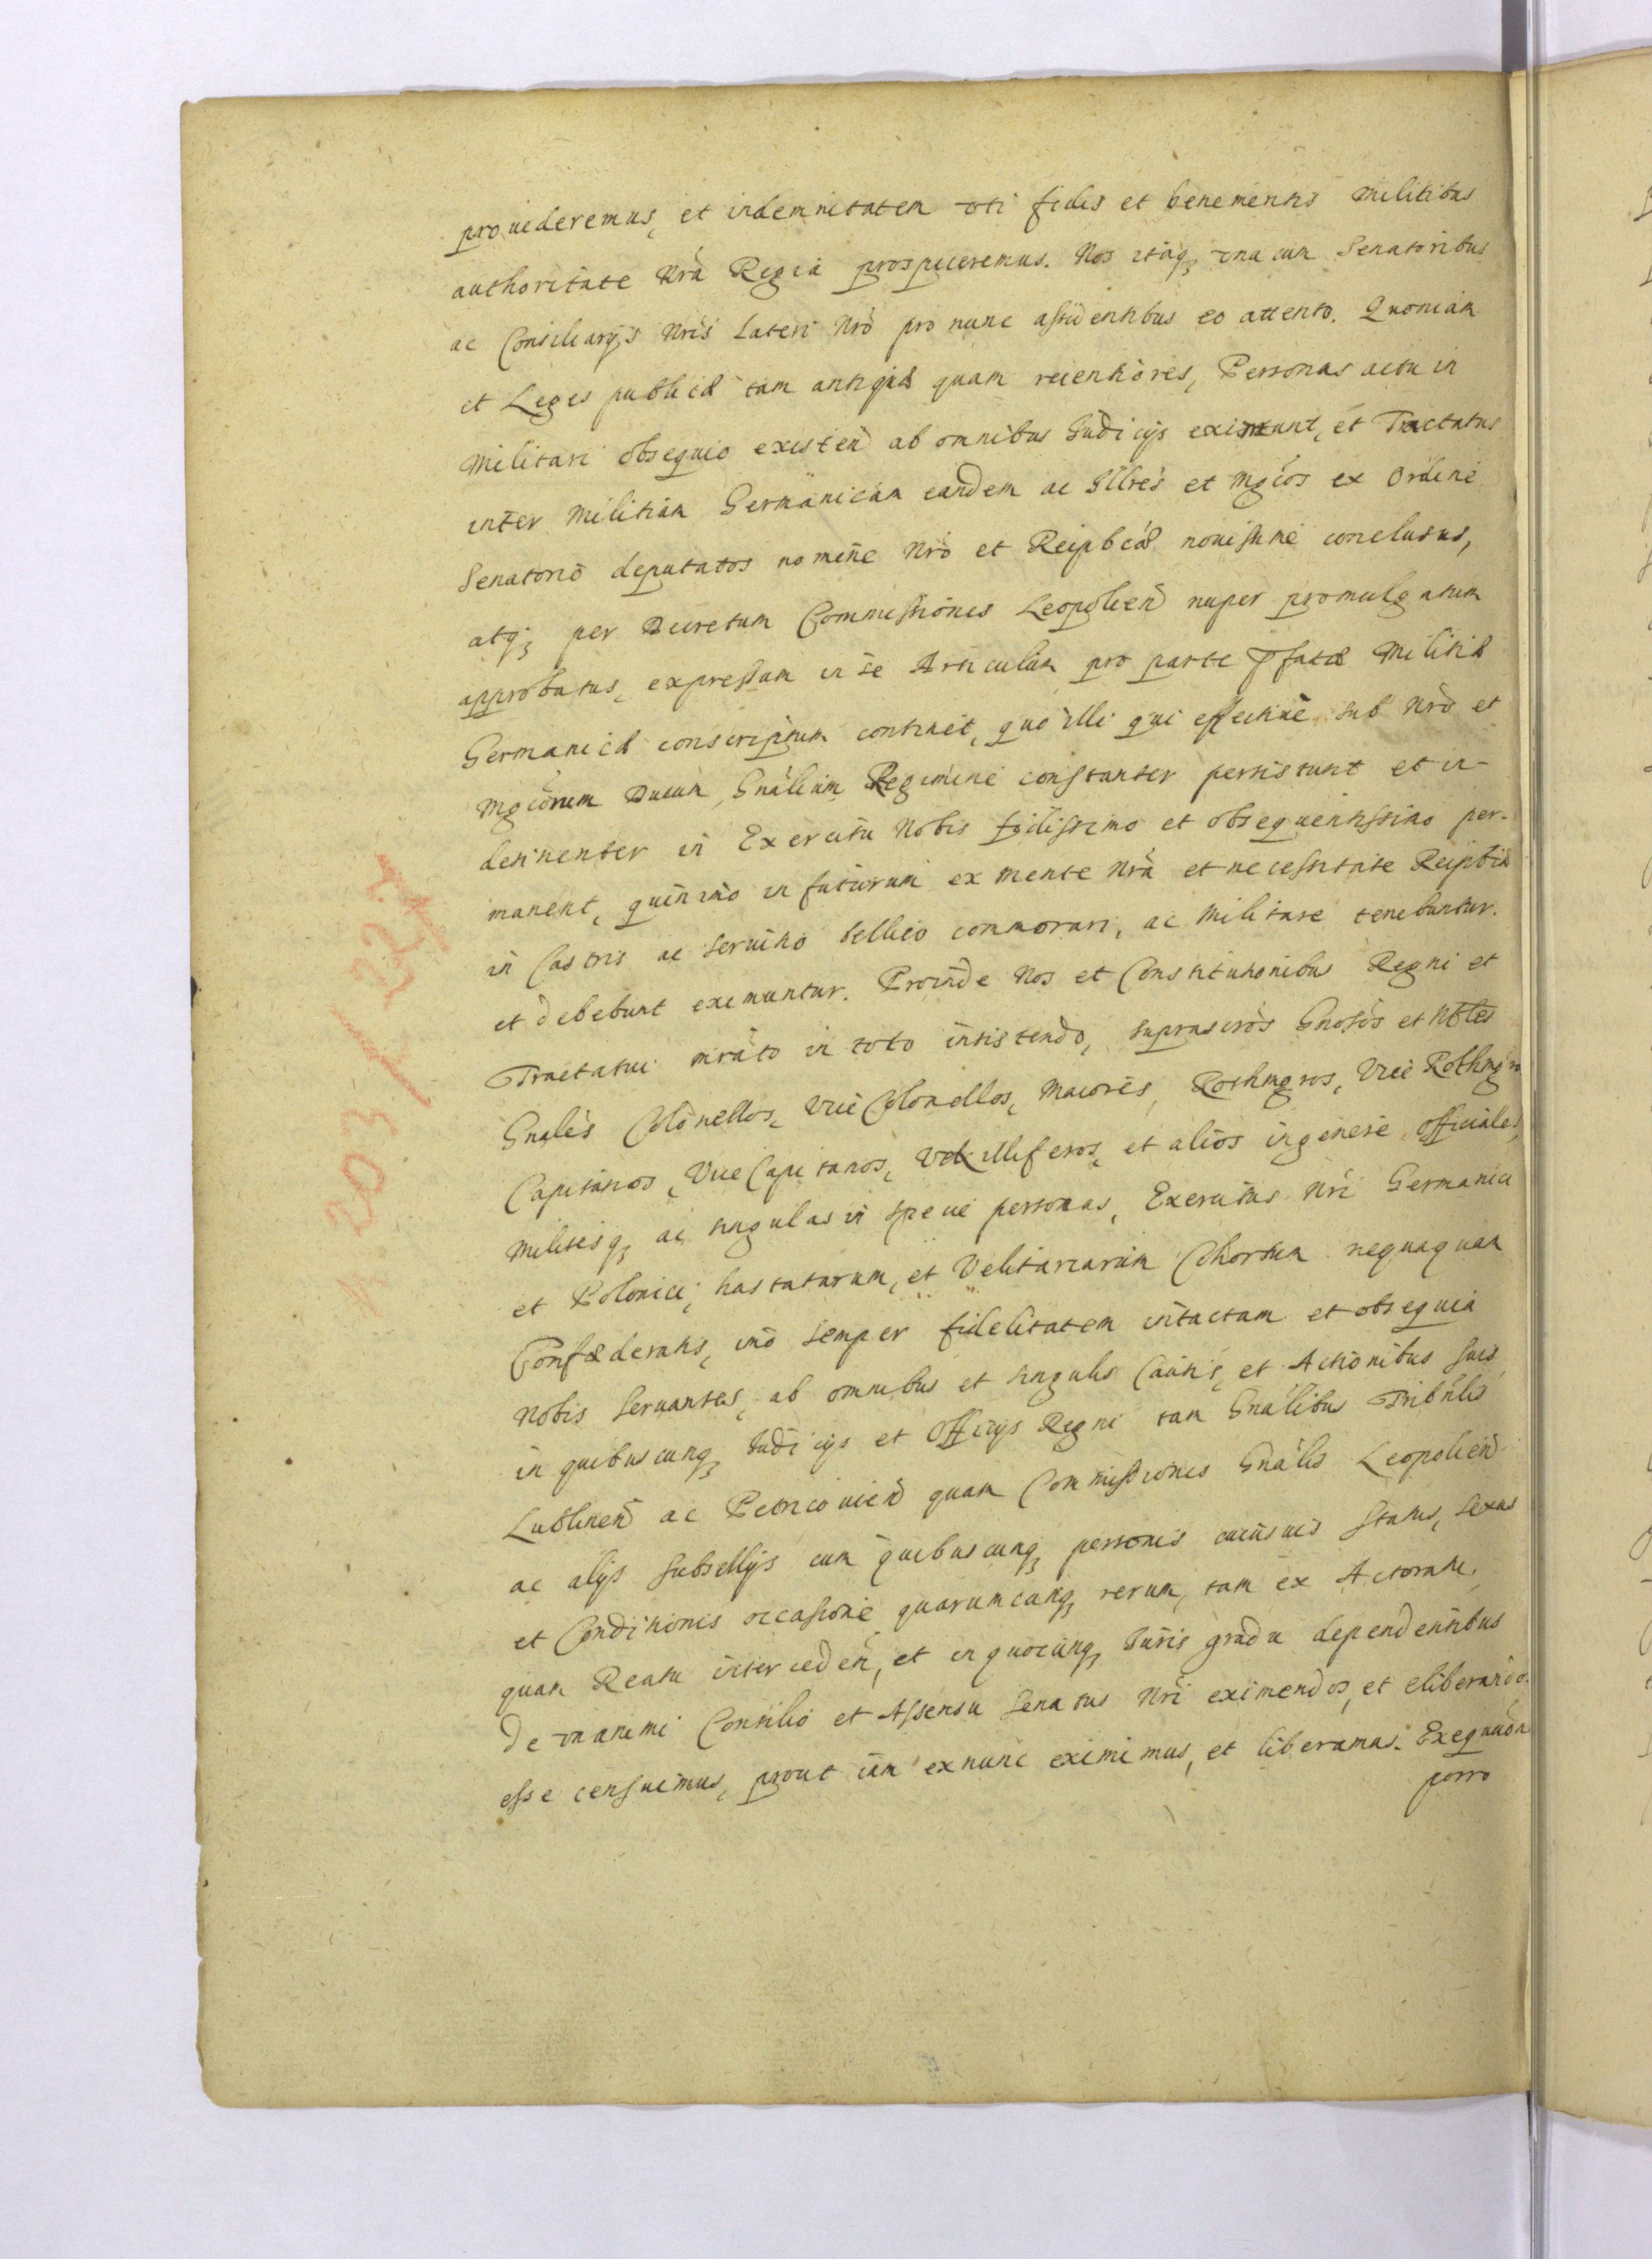 prouideremus, et indemnitatem oti fidis et benemeritis militibus
authoritate Nrâ Regiâ prospiceremus. Nos itaq; vna cum Senatoribus
ac Consiliarijs Nris Lateri Nrô pro nunc assidentibus eo attento. Quoniam
et Leges publicæ tam antiquæ quam recentiores, Personas actu in
Militari obsequio existeñ ab omnibus Judicijs eximunt, et Tractatus
inter Militiam Germanicam eandem ac Illres et Mgcos ex Ordine
Senatorio deputatos nomine Nrô et Reipbcæ nouissime conclusus,
atq; per Decretum Commissionis Leopolieñ nuper promulgatum
approbatus, expressum in se Articulum pro parte pfatæ Militiæ
Germanicæ conscriptum continet, quo illi qui effectiue sub Nrô et
Mgcorum Ducum Gnalium Regimine constanter persistunt et in-
desinenter in Exercitu Nobis fidissimo et obsequentissimo per-
manent, quinimo in futurum ex mente Nrâ et necessitate Reipbcæ
in Castris ac seruitio bellico commorari, ac militare tenebuntur.
et debebunt eximuntur. Proinde Nos et Constitutionibus Regni et
Tractatui mrato in toto insistendo, suprascros Gnosos et Nbles
Gnales Colonellos, Vice Colonellos, Maiores, Rothmgros, Vice Rothmgro
Capitanos, Vice Capitanos, Vexilliferos, et alios ingenere Officiales,
Militesq; ac singulas in specie personas, Exercitus Nri Germanici
et Polonici, hastatarum, et Velitariarum Cohortum nequaquam
Confæderatis, imo semper fidelitatem intactam et obsequia
Nobis seruantes, ab omnibus et singulis Causis, et Actionibus suis
in quibuscunq; Judicijs et Officijs Regni tam Gnalibus Tribnlis
Lublineñ ac Petricouieñ quam Commissionis Gnalis Leopolieñ
ac alijs Subsellijs cum quibuscunq; personis cuiusuis Status, sexus
et Conditionis occasione quarumcunq; rerum, tam ex Actoratu,
quam Reatu interuedeñ, et in quocunq; Juris gradu dependentibus
de vnanimi Consilio et Assensu Senatus Nri eximendos, et eliberandos
esse censuimus, prout iam exnunc eximimus, et liberamus. Exequuõn
porro